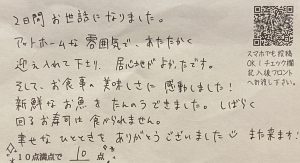 2日間お世話になりました。
アットホームな雰囲気で、あたたかく
迎え入れて下さり、居心地がよかったです。
そして、お食事の美味しさに感動しました!
新鮮なお魚をたんのうできました。しばらく
回るお寿司は食べられません。
幸せなひとときをありがとうございました☺ また来ます!
10点満点で 10 点
スマホでも投稿
OK!チェック欄
記入後フロント
へお渡し下さい。